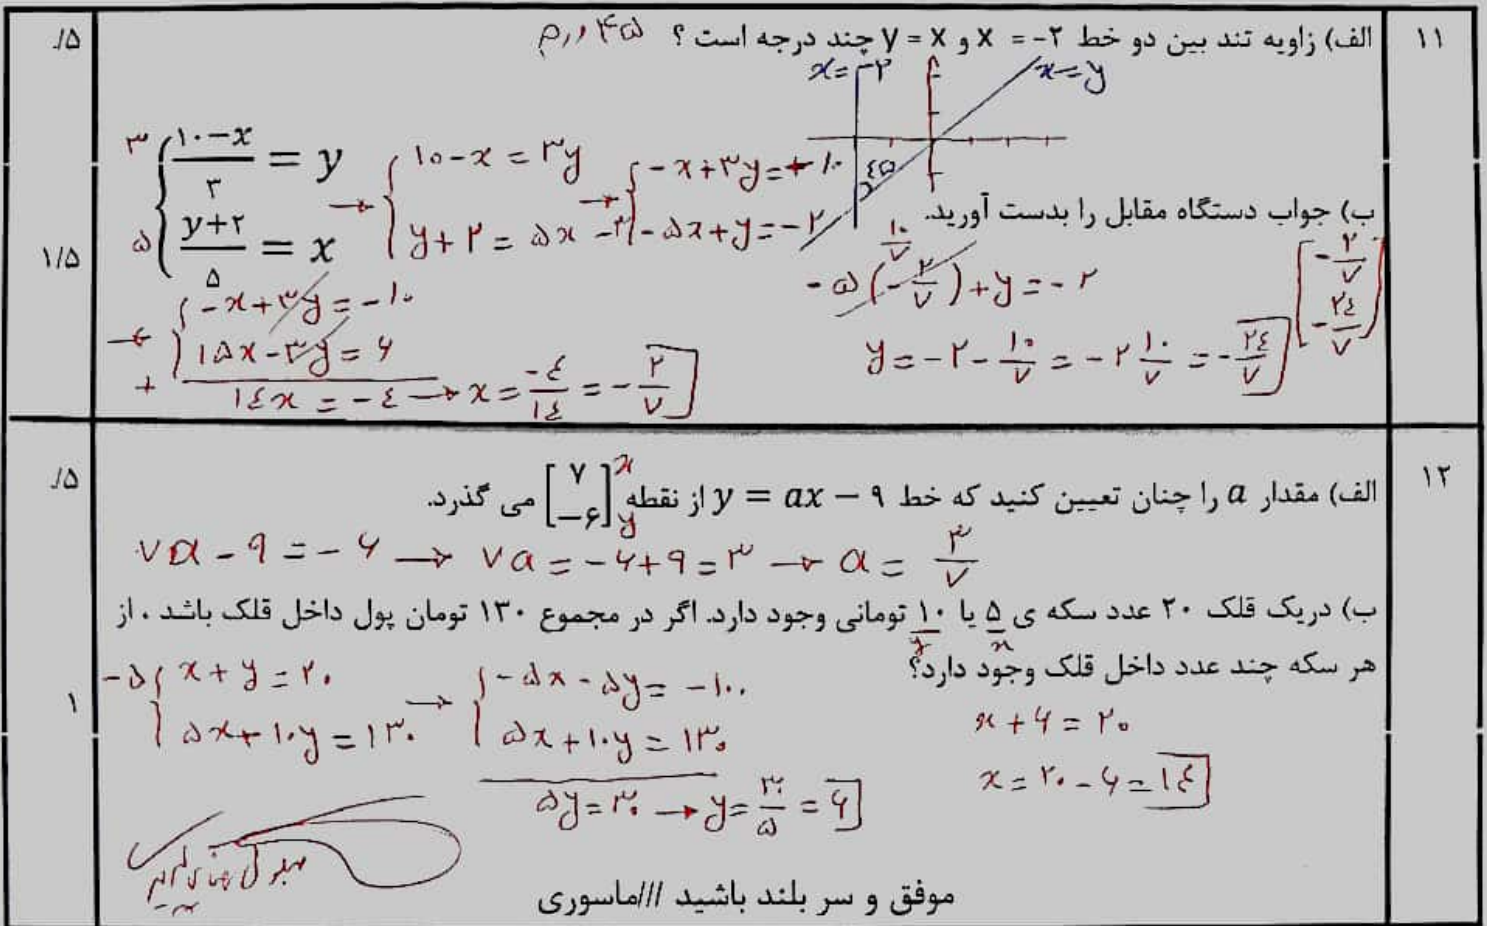 ۱۱
الف) زاویه تند بین دو خط ۲- = x و y = x چند درجه است ؟
۰/۵
x=-۲
x=y
۴۵
ب) جواب دستگاه مقابل را بدست آورید.
۱/۵
۳ { (۱۰-x)/۳ = y → { ۱۰-x = ۳y → { -x+۳y=+۱۰
۵ { (y+۲)/۵ = x { y+۲ = ۵x -۳{ -۵x+y=-۲
→ { -x+۳y=-۱۰
{ ۱۵x-۳y=۶
+ ۱۴x = -۴ → x = -۴/۱۴ = -۲/۷
-۵(-۲/۷)+y=-۲
۱۰/۷
y=-۲-۱۰/۷=-۲ ۱۰/۷=-۲۴/۷
[-۲/۷
-۲۴/۷]
۱۲
الف) مقدار a را چنان تعیین کنید که خط y = ax − ۹ از نقطه [۷ −۶] x y می گذرد.
۰/۵
۷a-۹=-۶ → ۷a=-۶+۹=۳ → a=۳/۷
ب) دریک قلک ۲۰ عدد سکه ی ۵ یا ۱۰ تومانی وجود دارد. اگر در مجموع ۱۳۰ تومان پول داخل قلک باشد . از
y x
هر سکه چند عدد داخل قلک وجود دارد؟
۱
-۵{ x+y=۲۰ → { -۵x-۵y=-۱۰۰
{ ۵x+۱۰y=۱۳۰ { ۵x+۱۰y=۱۳۰
۵y=۳۰ → y=۳۰/۵=۶
x+۶=۲۰
x=۲۰-۶=۱۴
موفق و سر بلند باشید ///ماسوری